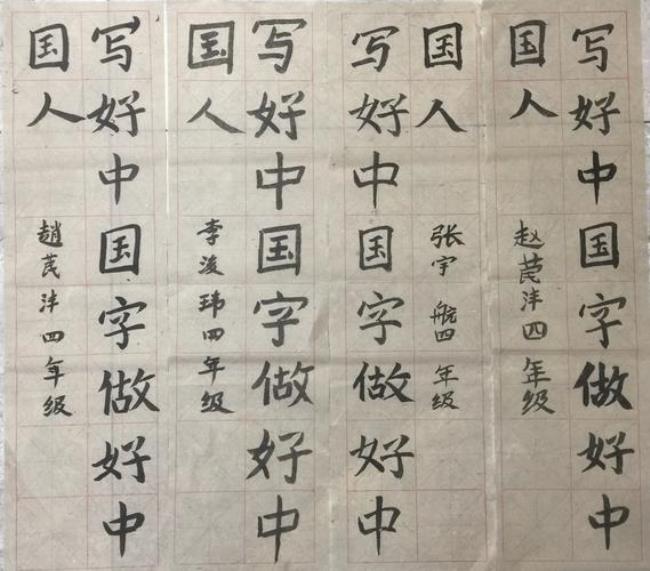 写好中国字做好中
国人 四年级
写好中国字做好中
国人 张宇航四年级
写好中国字做好中
国人 李浚玮四年级
写好中国字做好中
国人 四年级